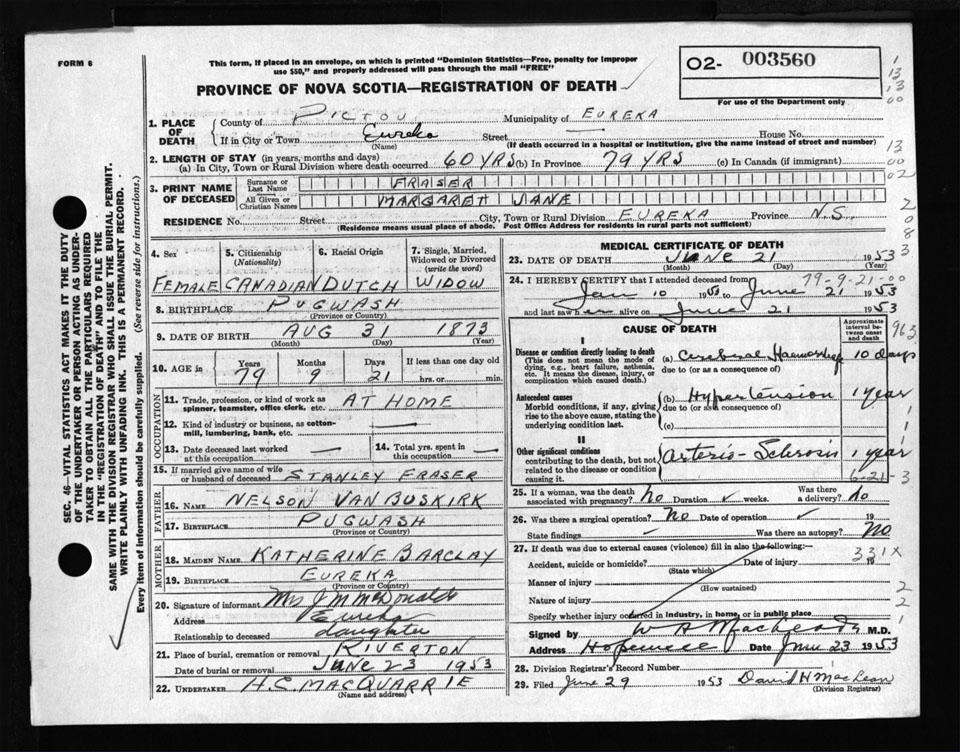 FORM 6
This form, if placed in an envelope, on which is printed "Dominion Statistics—Free, penalty for improper
use $50," and properly addressed will pass through the mail "FREE"
02- 003560
For use of the Department only
PROVINCE OF NOVA SCOTIA—REGISTRATION OF DEATH
1. PLACE OF DEATH
County of PICTOU Municipality of EUREKA
If in City or Town Eureka Street House No.
(Name) (If death occurred in a hospital or institution, give the name instead of street and number)
2. LENGTH OF STAY (in years, months and days)
(a) In City, Town or Rural Division where death occurred 60 YRS (b) In Province 79 YRS (c) In Canada (if immigrant)
3. PRINT NAME OF DECEASED
Surname or Last Name FRASER
All Given or Christian Names MARGARET JANE
RESIDENCE No. Street City, Town or Rural Division EUREKA Province N.S.
(Residence means usual place of abode. Post Office Address for residents in rural parts not sufficient)
4. Sex FEMALE
5. Citizenship (Nationality) CANADIAN
6. Racial Origin DUTCH
7. Single, Married, Widowed or Divorced (write the word) WIDOW
8. BIRTHPLACE PUGWASH
(Province or County)
9. DATE OF BIRTH AUG 31 1873
(Month) (Day) (Year)
10. AGE in Years 79 Months 9 Days 21 If less than one day old hrs. or min.
OCCUPATION
11. Trade, profession, or kind of work as spinner, teamster, office clerk, etc. AT HOME
12. Kind of industry or business, as cotton-mill, lumbering, bank, etc. —
13. Date deceased last worked at this occupation —
14. Total yrs. spent in this occupation —
15. If married give name of wife or husband of deceased STANLEY FRASER
FATHER
16. NAME NELSON VAN BUSKIRK
17. BIRTHPLACE PUGWASH
(Province or Country)
MOTHER
18. MAIDEN NAME KATHERINE BARCLAY
19. BIRTHPLACE EUREKA
(Province or Country)
20. Signature of informant Mrs J M McDonald
Address Eureka
Relationship to deceased daughter
21. Place of burial, cremation or removal RIVERTON
Date of burial or removal JUNE 23 1953
22. UNDERTAKER H.C. MACQUARRIE
(Name and address)
MEDICAL CERTIFICATE OF DEATH
23. DATE OF DEATH JUNE 21 1953
(Month) (Day) (Year)
79-9-21-00
24. I HEREBY CERTIFY that I attended deceased from
Jan 10 1953 to June 21 1953
and last saw her alive on June 21 1953
CAUSE OF DEATH
Approximate interval between onset and death
I
Disease or condition directly leading to death
(This does not mean the mode of dying, e.g., heart failure, asthenia, etc. It means the disease, injury, or complication which caused death.)
(a) Cerebral Haemorrhage 10 days
due to (or as a consequence of)
Antecedent causes
Morbid conditions, if any, giving rise to the above cause, stating the underlying condition last.
(b) Hypertension 1 year
due to (or as a consequence of)
(c)
II
Other significant conditions
contributing to the death, but not related to the disease or condition causing it.
Arterio-Sclerosis 1 year
6-21-3
25. If a woman, was the death associated with pregnancy? no Duration weeks. Was there a delivery? no
26. Was there a surgical operation? No Date of operation 19
State findings - Was there an autopsy? No
27. If death was due to external causes (violence) fill in also the following:—
331X
Accident, suicide or homicide? Date of injury 19
(State which)
Manner of injury
(How sustained)
Nature of injury
Specify whether injury occurred in industry, in home, or in public place
Signed by M.D.
Address Hopewell Date June 23 1953
28. Division Registrar's Record Number
29. Filed June 29 1953 David H MacLean
(Division Registrar)
SEC. 46—VITAL STATISTICS ACT MAKES IT THE DUTY
OF THE UNDERTAKER OR PERSON ACTING AS UNDER-
TAKER TO OBTAIN ALL THE PARTICULARS REQUIRED
IN THE "REGISTRATION OF DEATH" AND TO FILE THE
SAME WITH THE DIVISION REGISTRAR WHO SHALL ISSUE THE BURIAL PERMIT.
WRITE PLAINLY WITH UNFADING INK. THIS IS A PERMANENT RECORD.
Every item of information should be carefully supplied. (See reverse side for instructions.)
1
13
13
00
13
00
02
2
0
8
3
3
963
1
1
2
2
1